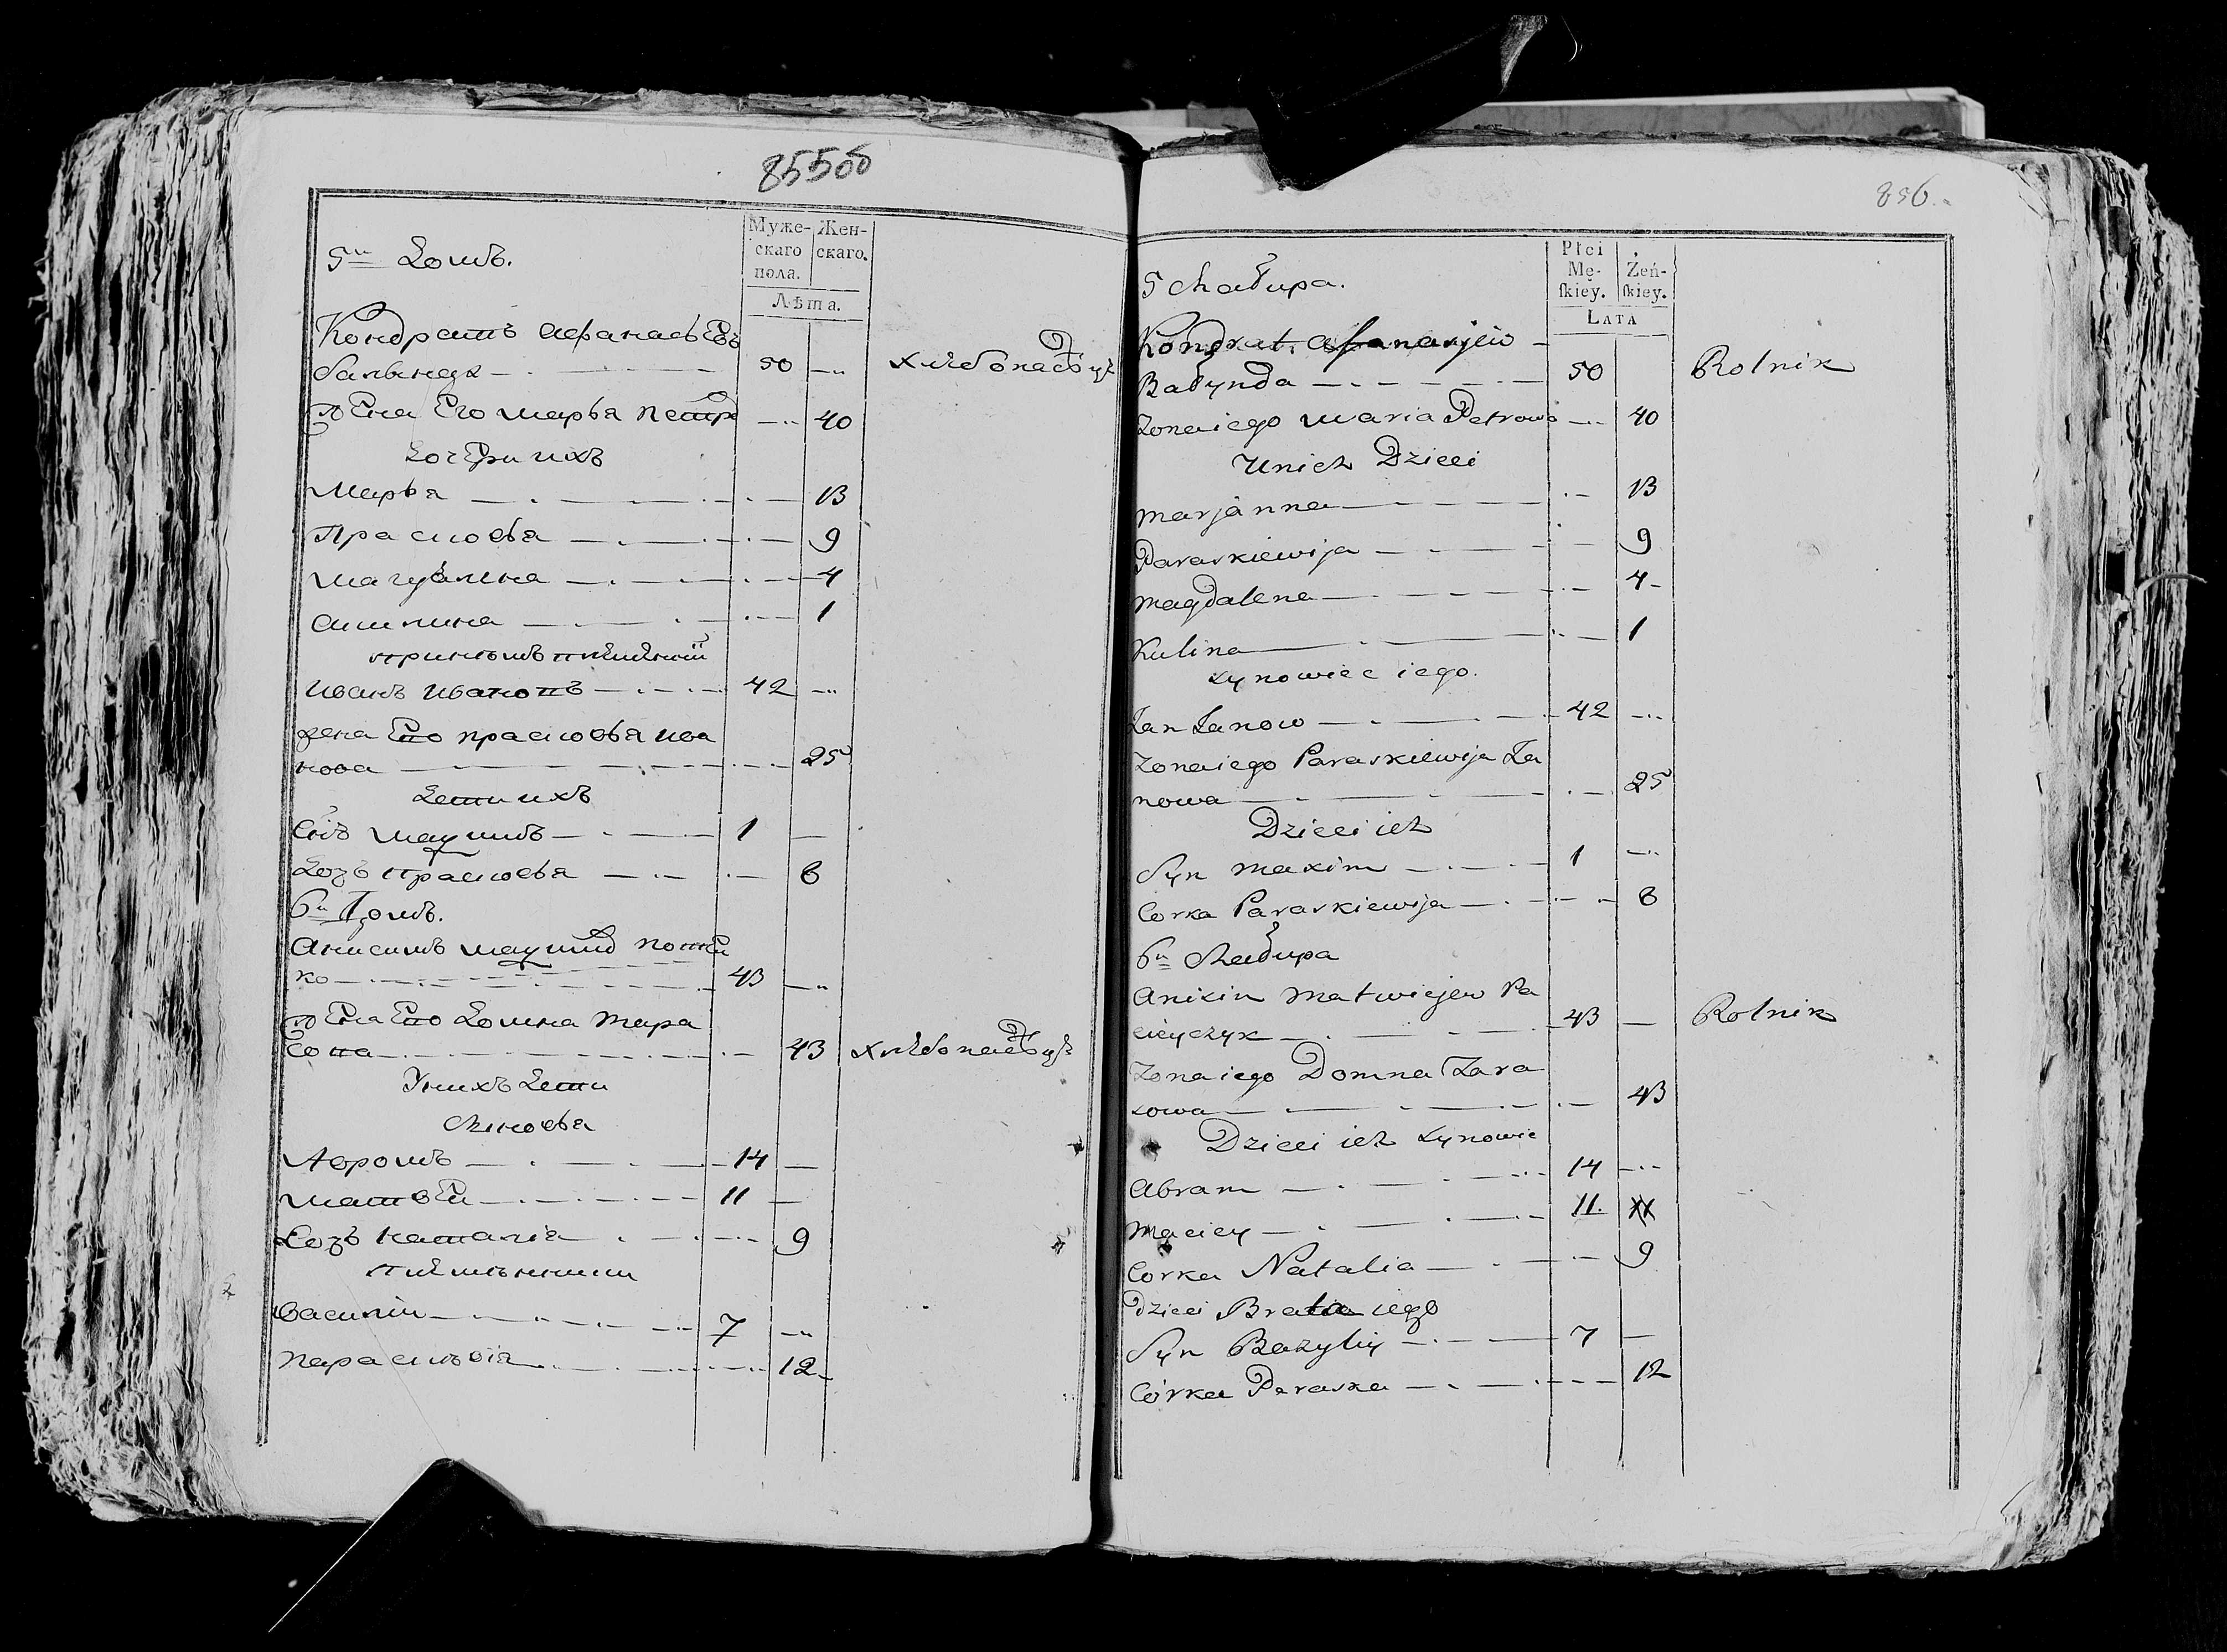 855об
5й Домъ.
Муже-
скаго
пола.
Жен-
скаго.
Лѣта.
Кондратъ Афанасьевъ
50 —
хлебопашецъ
жена Его Марья Петр — 40
Дочери ихъ
Марья — 13
Прасковья — 9
Магдалина — 4
Акилина — 1
Иванъ Ивановъ — 42 —
жена Его Прасковья Ива
нова — 25
Дети ихъ
Сынъ Максимъ — 1 —
Дочь Прасковья — 8
6й Домъ.
Анисимъ
ко — 43 —
жена Его Домна Тара
сова — 43 хлебопашецъ
У нихъ Дети
Сыновья
Абрамъ — 14 —
Матвей — 11 —
Дочь Наталія — 9
племянники
Василій — 7 —
Парасковія — 12
856.
5 Chałupa.
Płci
Mę-
skiey.
Żeń-
skiey.
LATA
Kondrat Afanasjew —
Bałynda — 50 Rolnik
Zona iego Maria Petrowa — 40
U nich Dzieci
Marjanna — 13
Paraskiewija — 9
Magdalena — 4
Kulina — 1
synowiec iego.
Jan Janow — 42 —
Zona iego Paraskiewija Ja
nowa — 25
Dzieci ich
Syn Maxim — 1 —
Corka Paraskiewija — 8
6й Chałupa
Anisim Matwiejew Pa
43 — Rolnik
Zona iego Domna Tara
sowa — 43
Dzieci ich synowie
Abram — 14 —
Maciey — 11.
Corka Natalia — 9
Dzieci Brata iego
Syn Bazyliy — 7 —
Córka Paraska — 12